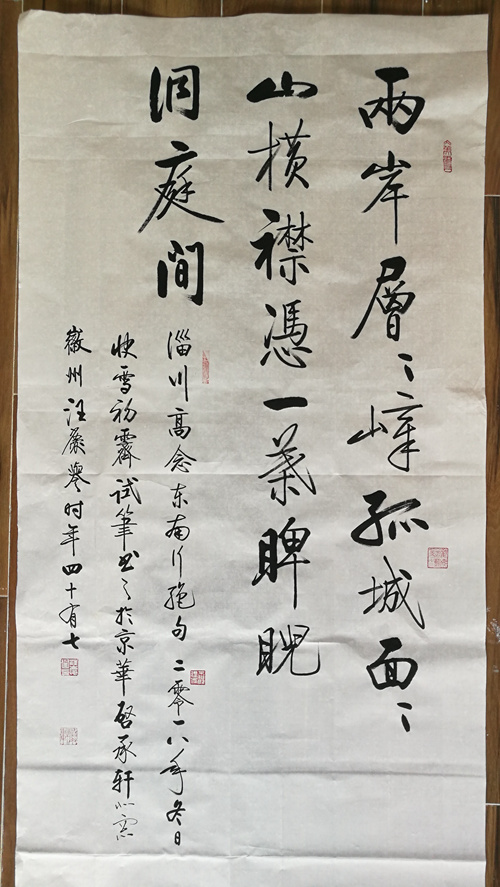 兩岸層〻嶂孤城面〻
山橫襟憑一葉睥睨
洞庭間
淄川高念东南行绝句二零一八年冬日
快雪初霽试筆书之於京華啓承轩北窓
徽州汪嚴學时年四十有七